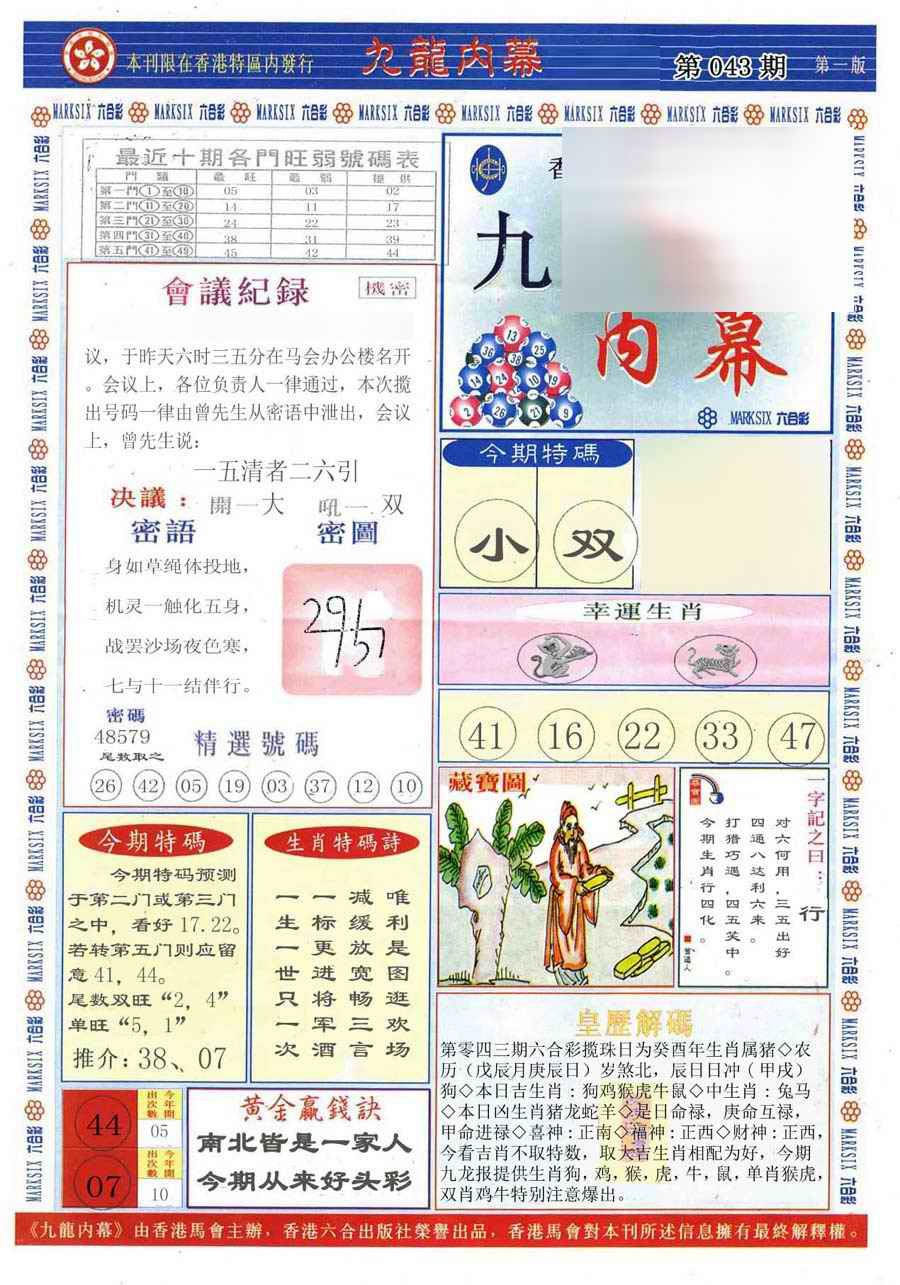 本刊限在香港特區内發行
九龍内幕
第 043 期
第一版
MARKSIX 六合彩
最近十期各門旺弱號碼表
門 類 最 旺 最 弱 提 供
第一門①至⑩ 05 03 02
第二門⑪至⑳ 14 11 17
第三門㉑至㉚ 24 22 23
第四門㉛至㊵ 38 31 39
第五門㊶至㊾ 45 42 44
會議紀録
機密
议，于昨天六时三五分在马会办公楼名开
。会议上，各位负责人一律通过，本次揽
出号码一律由曾先生从密语中泄出，会议
上，曾先生说：
一五清者二六引
决議：開一大 吼一双
密語
密圖
身如草绳体投地，
机灵一触化五身，
战罢沙场夜色寒，
七与十一结伴行。
密碼
48579
尾数取之
精選號碼
26 42 05 19 03 37 12 10
九
内幕
13
36 38 25
14 24 10 19
2 26 21 9
MARKSIX 六合彩
今期特碼
小 双
幸運生肖
41 16 22 33 47
藏寶圖
一字記之曰：行
对六何用，三五出好
四通八达利六来。
打猎巧遇，四五笑中。
今期生肖行四化。
曾道人
今期特碼
今期特码预测
于第二门或第三门
之中，看好 17.22。
若转第五门则应留
意 41，44。
尾数双旺“2，4”
单旺“5，1”
推介：38、07
生肖特碼詩
唯利是图逛欢场
减缓放宽畅三言
一标更进将军酒
一生一世只一次
44
今年開出次數
05
07
今年開出次數
10
黄金贏錢訣
南北皆是一家人
今期从来好头彩
皇歷解碼
第零四三期六合彩揽珠日为癸酉年生肖属猪◇农
历（戊辰月庚辰日）岁煞北，辰日日冲（甲戌）
狗◇本日吉生肖：狗鸡猴虎牛鼠◇中生肖：兔马
◇本日凶生肖猪龙蛇羊◇是日命禄，庚命互禄，
甲命进禄◇喜神：正南◇福神：正西◇财神：正西，
今看吉肖不取特数，取大吉生肖相配为好，今期
九龙报提供生肖狗，鸡，猴，虎，牛，鼠，单肖猴虎，
双肖鸡牛特别注意爆出。
《九龍内幕》由香港馬會主辦，香港六合出版社榮譽出品，香港馬會對本刊所述信息擁有最終解釋權。